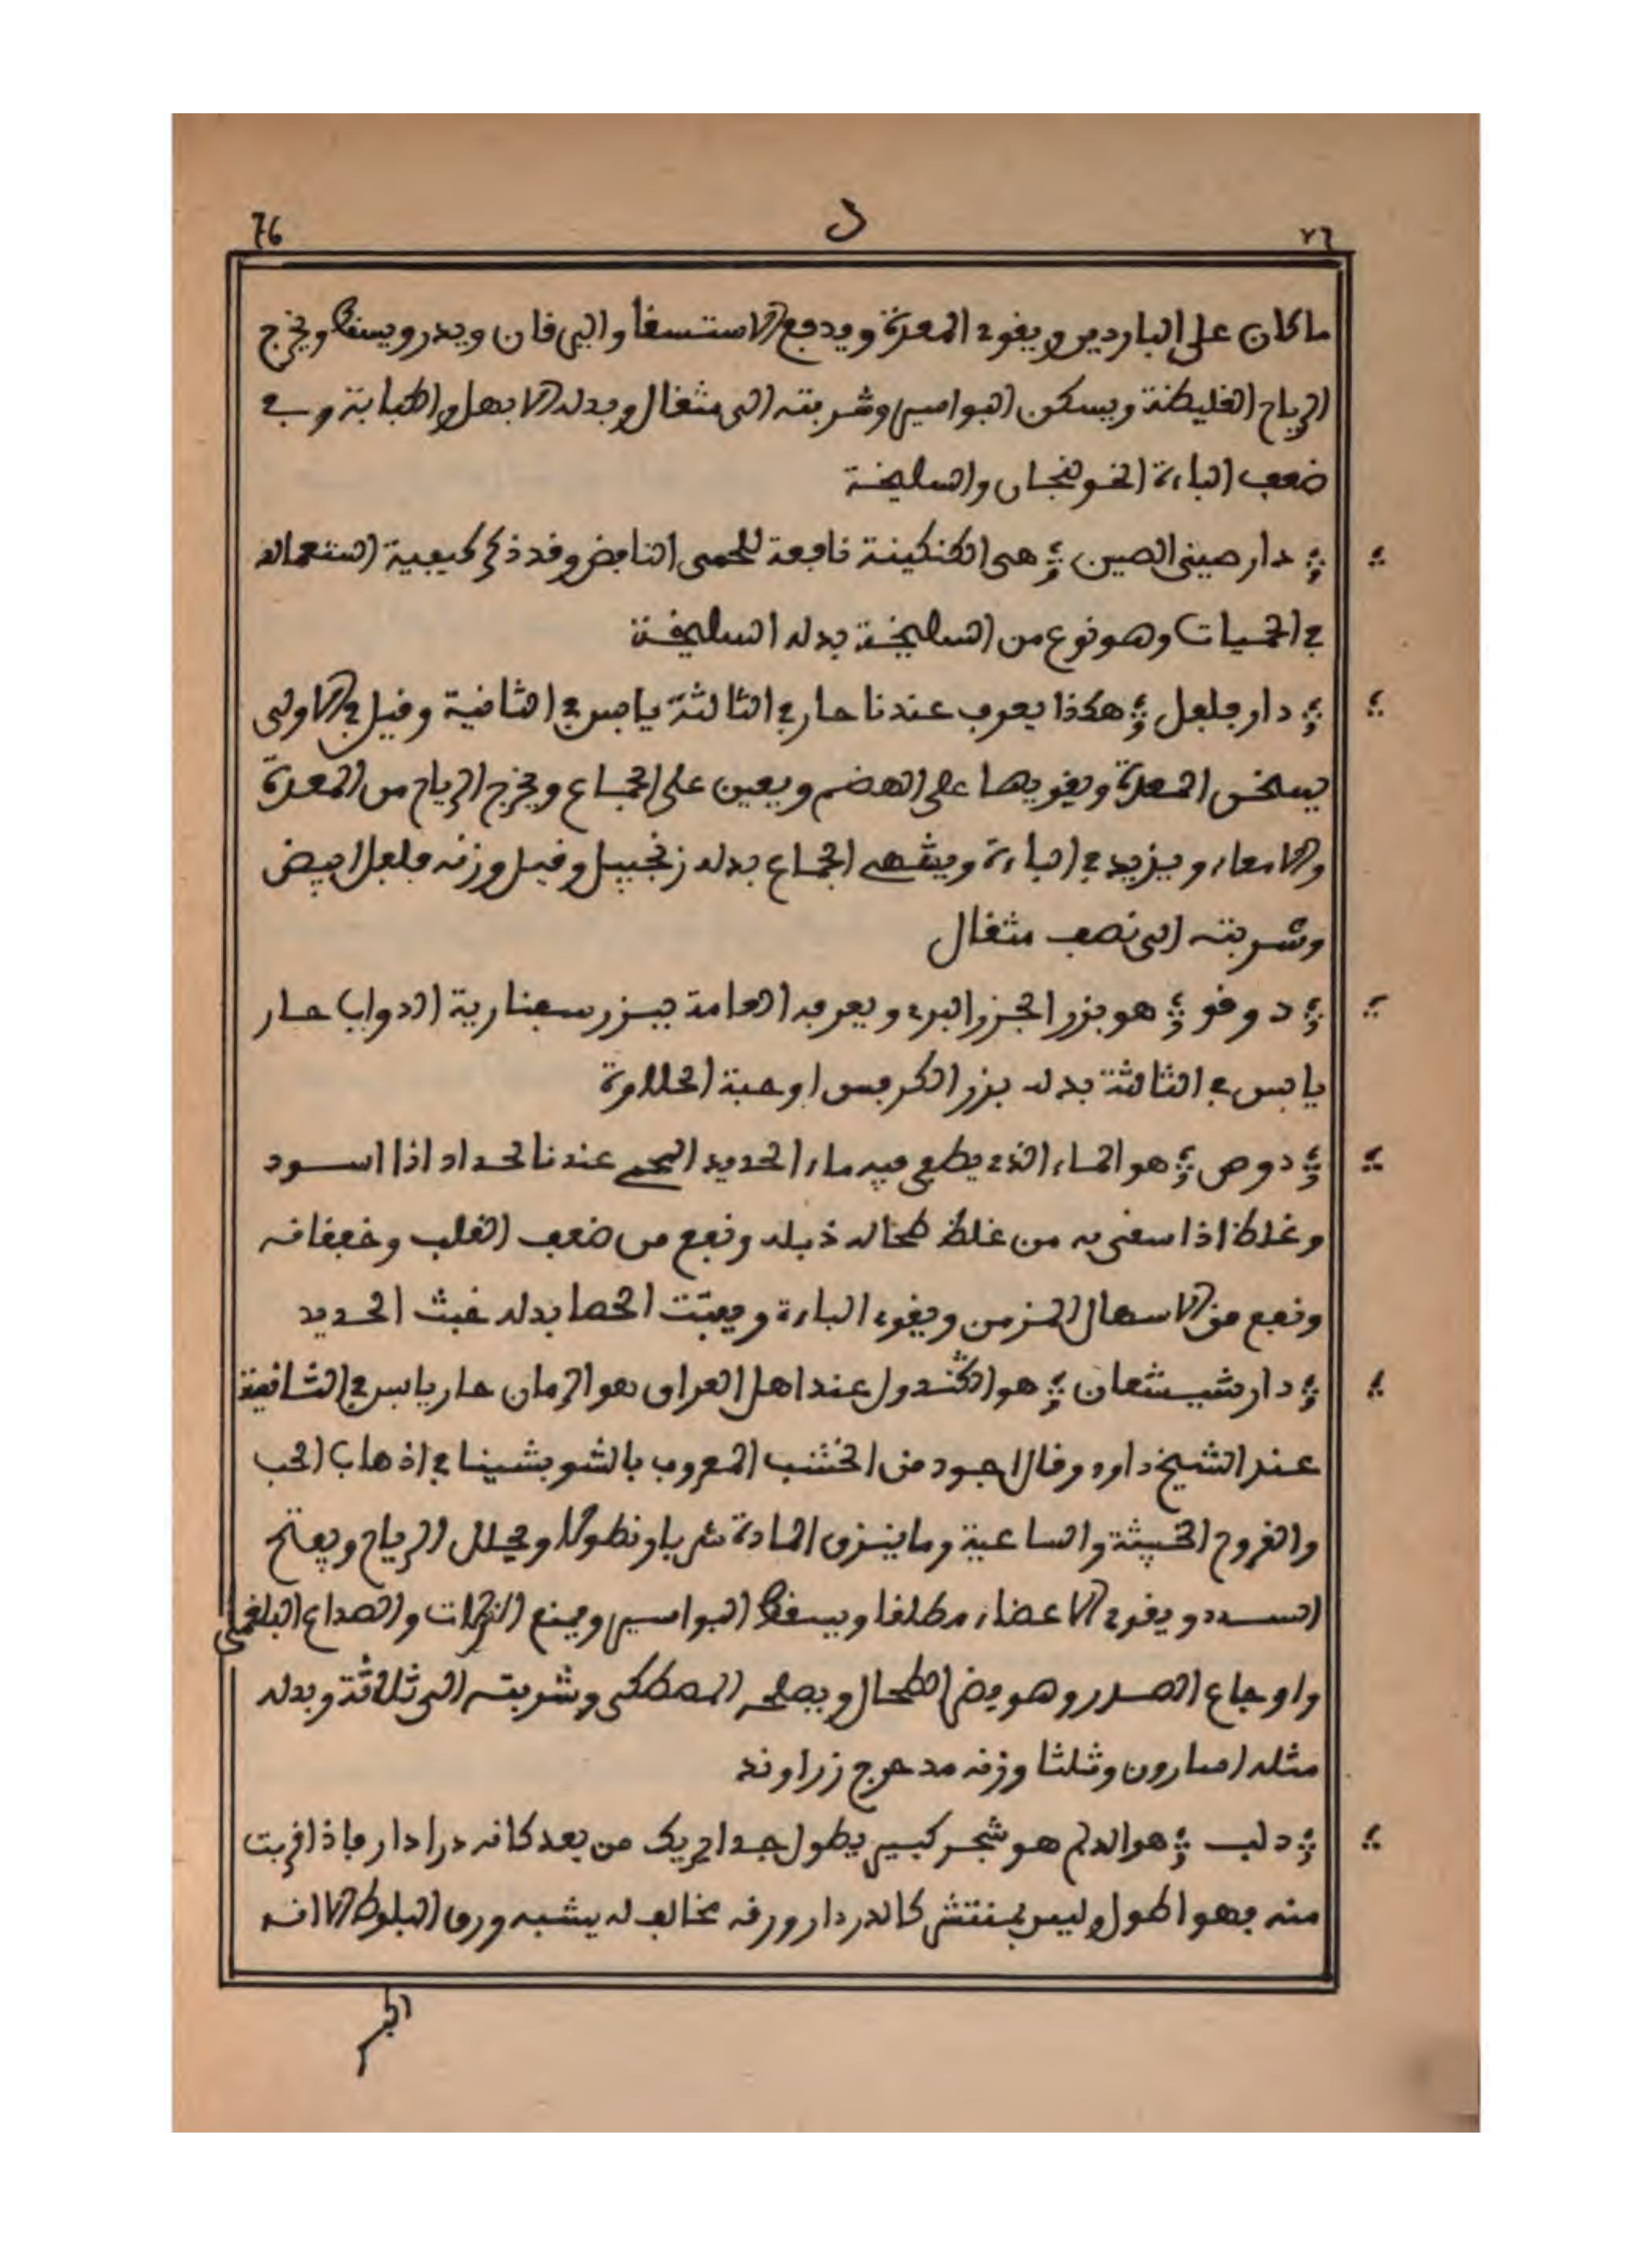 76 د ٧٦
ما كان على الباردين ويقوي المعدة ويدفع الاستسقا واليرقان ويدر ويسقط ويخرج
الرياح الغليظة ويسكن البواسير وشربته الى مثقال وبدله الابهل والكبابة وفي
ضعف الباءة الخولنجان والسليخة
دار صيني الصين هى الكنكينة نافعة للحمى النافض وقد ذكر كيفية استعماله
في الحميات وهو نوع من السليخة بدله السليخة
دار فلفل هكذا يعرف عندنا حار في الثالثة يابس في الثانية وقيل في الاولى
يسخن المعدة ويقويها على الهضم ويعين على الجماع ويخرج الرياح من المعدة
والامعاء ويزيد في الباءة ويشهي الجماع بدله زنجبيل وقيل وزنه فلفل ابيض
وشربته الى نصف مثقال
دوقو هو بزر الجزر البري ويعرفه العامة ببزر سفنارية الدواب حار
يابس في الثالثة بدله بزر الكرفس او حبة الحلاوة
دوص هو الماء الذي يطفى فيه ماء الحديد المحمي عند الحداد اذا اسود
وغلظ اذا سقى به من غلظ طحاله ذبله ونفع من ضعف القلب وخفقانه
ونفع من الاسهال المزمن ويقوي الباءة ويفتت الحصا بدله خبث الحديد
دار شيشعان هو القندول عند اهل العراق هو الرمان حار يابس في الثانية
عند الشيخ داود وقال اجود من الخشب المعروف بالشوبشينا في اذهاب الحب
والقروح الخبيثة والساعية وما ينزف المادة شربا ونطولا ويحلل الرياح ويفتح
السدد ويقوي الاعضاء مطلقا ويسقط البواسير ويمنع النزلات والصداع البلغمى
واوجاع الصدر وهو يضر الطحال ويصلحه المصطكى وشربته الى ثلاثة وبدله
مثله اسارون وثلثا وزنه مدحرج زراوند
دلب هو الدلم هو شجر كبير يطول جدا يريك من بعد كانه دردار فاذا قربت
منه فهو اطول وليس بمنتش كالدردار ورقه مخالف له يشبه ورق البلوط الا انه